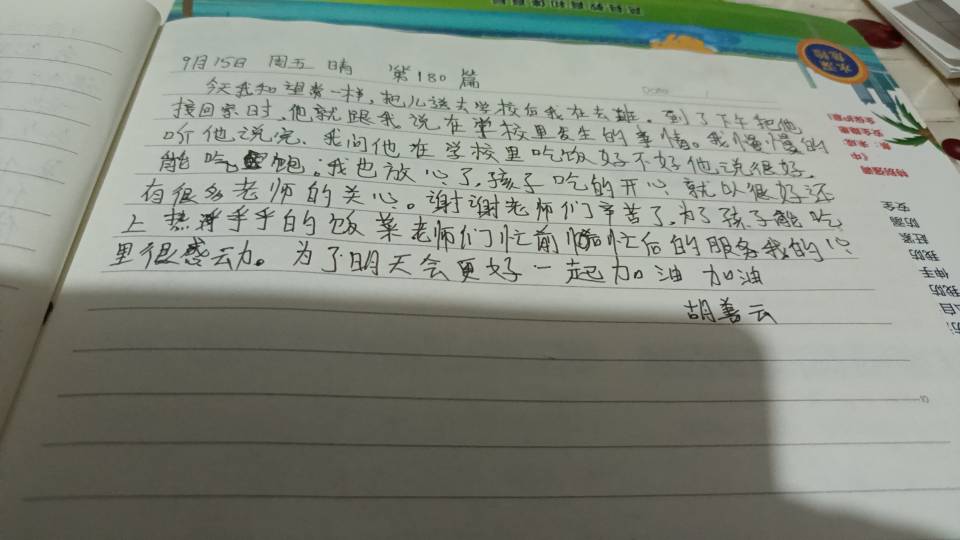 9月15日 周五 晴 第180篇
今天我和望常一样,把儿送去学校后我在去难。到了下午把他
接回家时,他就跟我说在学校里发生的事情。我慢慢的
听他说完、我问他在学校里吃饭好不好他说很好、
能吃饱。我也放心了,孩子吃的开心就以很好还
有很多老师的关心。谢谢老师们辛苦了,为了孩子能吃
上热乎乎的饭菜老师们忙前忙后的服务我的心
里很感动。为了明天会更好一起加油 加油
胡善云
水深危险